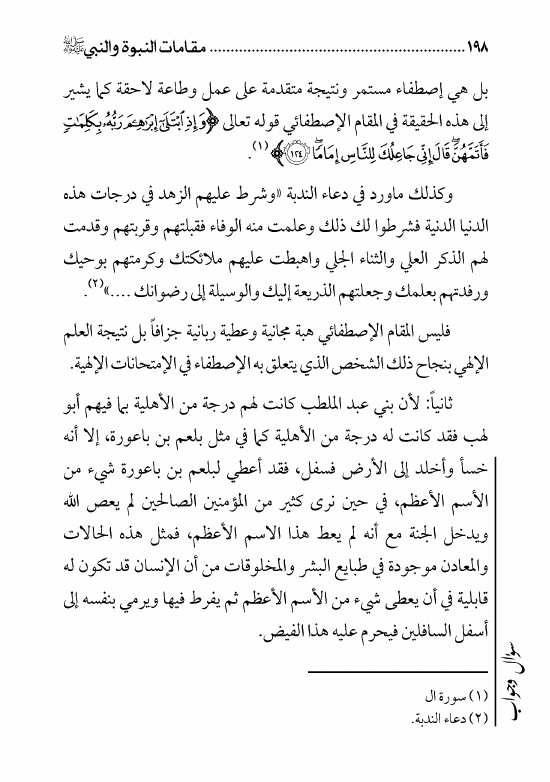 ١٩٨ .............................................................. مقامات النبوة والنبي ﷺ
بل هي إصطفاء مستمر ونتيجة متقدمة على عمل وطاعة لاحقة كما يشير
إلى هذه الحقيقة في المقام الإصطفائي قوله تعالى ﴿وَإِذِ ابْتَلَىٰ إِبْرَاهِيمَ رَبُّهُ بِكَلِمَاتٍ
فَأَتَمَّهُنَّ ۖ قَالَ إِنِّي جَاعِلُكَ لِلنَّاسِ إِمَامًا ۖ ١٢٤﴾ (١).
وكذلك ماورد في دعاء الندبة «وشرط عليهم الزهد في درجات هذه
الدنيا الدنية فشرطوا لك ذلك وعلمت منه الوفاء فقبلتهم وقربتهم وقدمت
لهم الذكر العلي والثناء الجلي واهبطت عليهم ملائكتك وكرمتهم بوحيك
ورفدتهم بعلمك وجعلتهم الذريعة إليك والوسيلة إلى رضوانك ....»(٢).
فليس المقام الإصطفائي هبة مجانية وعطية ربانية جزافاً بل نتيجة العلم
الإلهي بنجاح ذلك الشخص الذي يتعلق به الإصطفاء في الإمتحانات الإلهية.
ثانياً: لأن بني عبد الملطب كانت لهم درجة من الأهلية بما فيهم أبو
لهب فقد كانت له درجة من الأهلية كما في مثل بلعم بن باعورة، إلا أنه
خسأ وأخلد إلى الأرض فسفل، فقد أعطي لبلعم بن باعورة شيء من
الأسم الأعظم، في حين نرى كثير من المؤمنين الصالحين لم يعص الله
ويدخل الجنة مع أنه لم يعط هذا الاسم الأعظم، فمثل هذه الحالات
والمعادن موجودة في طبايع البشر والمخلوقات من أن الإنسان قد تكون له
قابلية في أن يعطى شيء من الأسم الأعظم ثم يفرط فيها ويرمي بنفسه إلى
أسفل السافلين فيحرم عليه هذا الفيض.
(١) سورة ال
(٢) دعاء الندبة.
سؤال وجواب